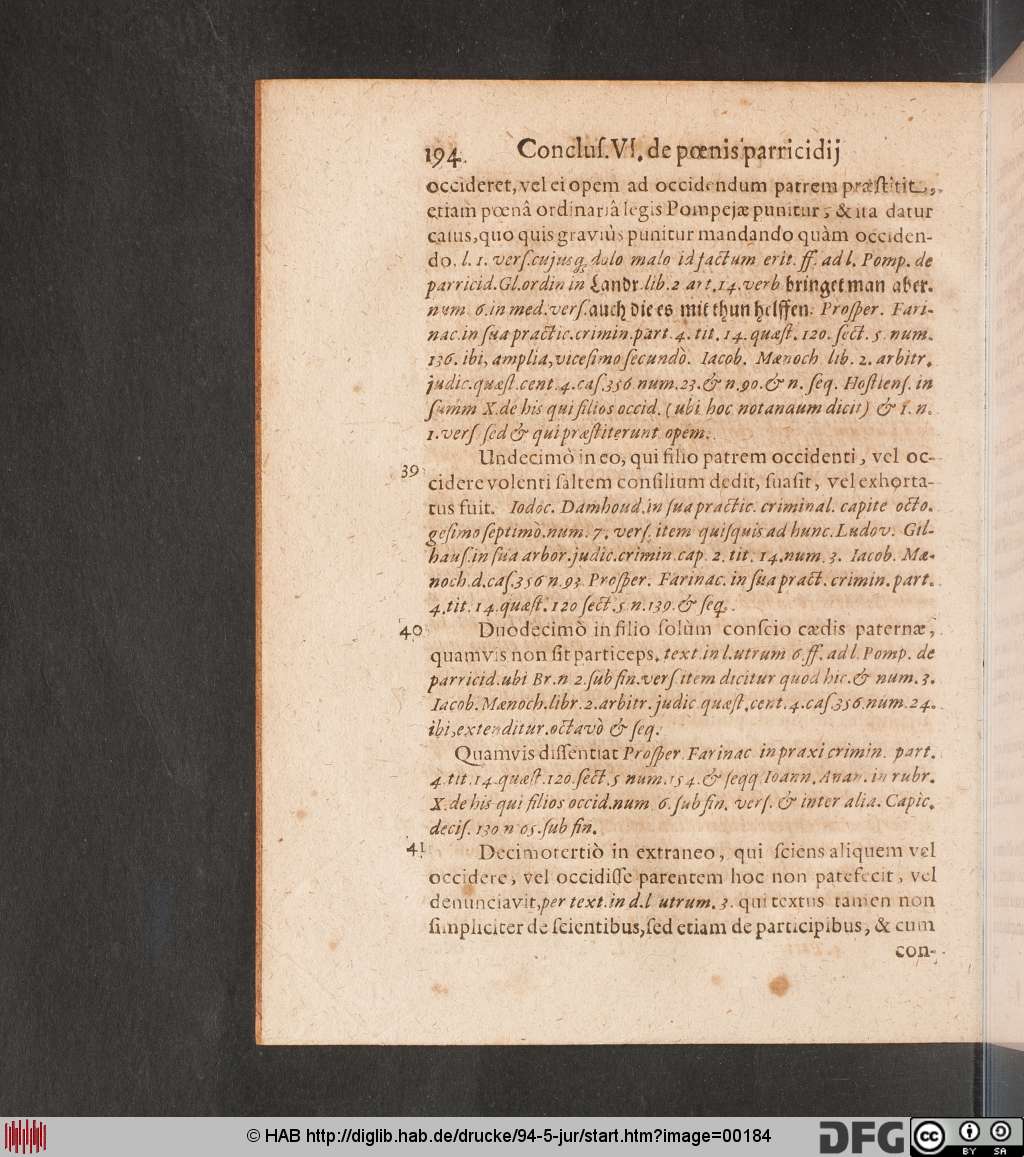 194. Concluſ. VI. de pœnis parricidij
occideret, vel ei opem ad occidendum patrem præſtitit,
etiam pœnâ ordinariâ legis Pompejæ punitur, & ita datur
caſus, quo quis graviùs punitur mandando quàm occiden-
do. l. 1. verſ. cujusq; dolo malo id factum erit. ff. ad l. Pomp. de
parricid. Gl. ordin in Landr. lib. 2 art. 14. verb bringet man aber.
num 6. in med. verſ. auch die es mit thun helffen. Proſper. Fari-
nac. in ſua practic. crimin. part. 4. tit. 14. quæſt. 120. ſect. 5. num.
136. ibi, amplia, viceſimo ſecundò. Iacob. Mænoch. lib. 2. arbitr.
judic. quæſt. cent. 4. caſ. 356 num. 23. & n. 90. & n. ſeq. Hoſtienſ. in
ſumm X. de his qui filios occid. (ubi hoc notandum dicit) & 1. n.
1. verſ ſed & qui præſtiterunt opem.
39 Undecimò in eo, qui filio patrem occidenti, vel oc-
cidere volenti ſaltem conſilium dedit, ſuaſit, vel exhorta-
tus fuit. Iodoc. Damhoud. in ſua practic. criminal. capite octo-
geſimo ſeptimò. num. 7. verſ. item quiſquis ad hunc. Ludov. Gil-
hauſ. in ſua arbor. judic. crimin. cap. 2. tit. 14. num. 3. Iacob. Mæ-
noch. d. caſ. 356 n. 93. Proſper. Farinac. in ſua pract. crimin. part.
4. tit. 14. quæſt. 120 ſect. 5. n. 139. & ſeq.
40 Duodecimò in filio ſolùm conſcio cædis paternæ,
quamvis non ſit particeps. text. in l. utrum 6. ff. ad l. Pomp. de
parricid. ubi Br. n 2. ſub fin. verſ item dicitur quod hic. & num. 3.
Iacob. Mænoch. libr. 2. arbitr. judic quæſt. cent. 4. caſ. 356. num. 24.
ibi, extenditur. octavò & ſeq.
Quamvis diſſentiat Proſper Farinac in praxi crimin. part.
4. tit. 14. quæſt. 120. ſect. 5 num. 154. & ſeqq. Ioann. Anan. in rubr.
X. de his qui filios occid. num. 6. ſub fin. verſ. & inter alia. Capic.
deciſ. 130 n ſub fin.
41 Decimotertiò in extraneo, qui ſciens aliquem vel
occidere, vel occidiſſe parentem hoc non patefecit, vel
denunciavit, per text. in d. l utrum. 3. qui textus tamen non
ſimpliciter de ſcientibus, ſed etiam de participibus, & cum
con-
© HAB http://diglib.hab.de/drucke/94-5-jur/start.htm?image=00184
DFG
cc BY SA